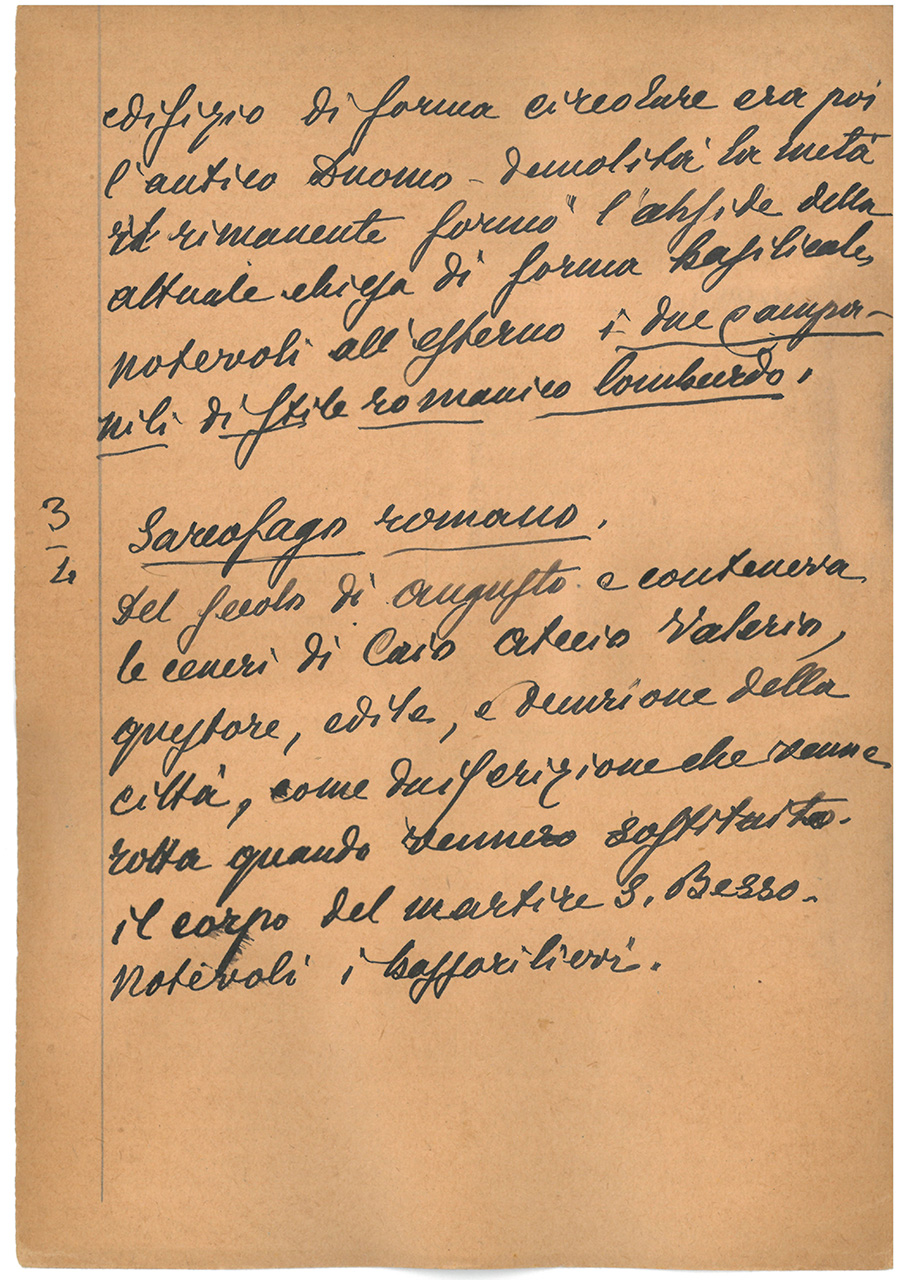 edifizio di forma circolare era poi
l'antico Duomo - demolita la metà
il rimanente formò l'abside della
attuale chiesa di forma basilicale,
notevoli all'esterno i due campa-
nili di stile romanico lombardo.
3/4 Sarcofago romano.
Del secolo di Augusto e conteneva
le ceneri di Caio Atecio Valerio,
questore, edile, e decurione della
città, come da iscrizione che venne
rotta quando vennero sostituito
il corpo del martire S. Besso.
Notevoli i bassorilievi.